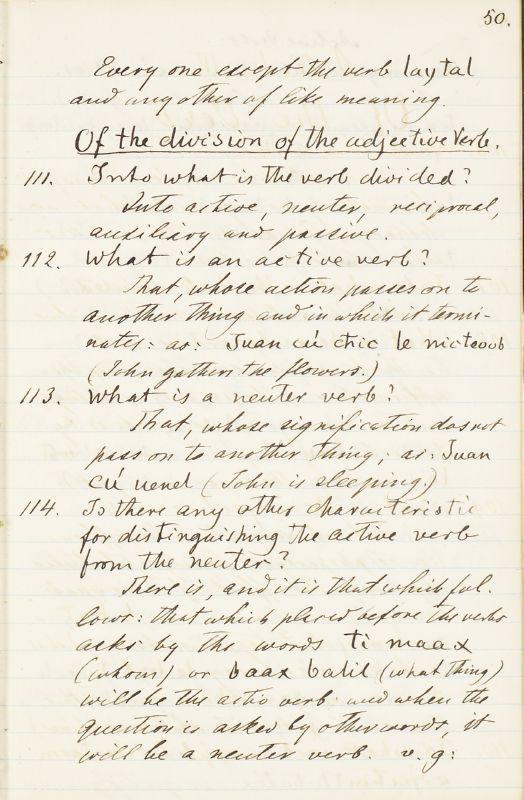 50.
Every one except the verb laytal
and any other of like meaning.
Of the division of the adjective verb.
111. Into what is the verb divided?
Into active, neuter, reciprocal,
auxiliary and passive.
112. What is an active verb?
That, whose action passes on to
another thing and in which it termi-
nates: as: Juan cú chic le nicteoob
(John gathers the flowers.)
113. What is a neuter verb?
That, whose signification does not
pass on to another thing; as: Juan
cú uenel (John is sleeping)
114. Is there any other characteristic
for distinguishing the active verb
from the neuter?
There is, and it is that which fol-
lows: that which placed before the verbs
asks by the words ti maax
(whom) or baax balil (what thing)
will be the activ verb: and when the
question is asked by other words, it
will be a neuter verb. v. g: